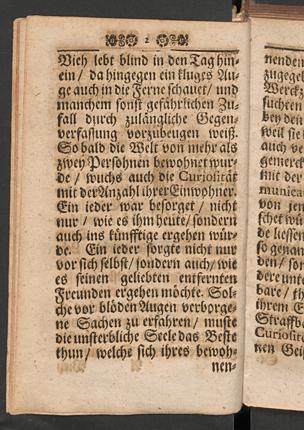 2
Vieh lebt blind in den Tag hin-
ein / da hingegen ein kluges Au-
ge auch in die Ferne schauet / und
manchem sonst gefährlichen Zu-
fall durch zulängliche Gegen-
verfassung vorzubeugen weiß.
So bald die Welt von mehr als
zwey Persohnen bewohnet wur-
de / wuchs auch die Curiosität
mit der Anzahl ihrer Einwohner.
Ein ieder war besorget / nicht
nur / wie es ihm heute / sondern
auch ins künfftige ergehen wür-
de. Ein ieder sorgte nicht nur
vor sich selbst / sondern auch / wie
es seinen geliebten entfernten
Freunden ergehen möchte. Sol-
che vor blöden Augen verborge-
ne Sachen zu erfahren / muste
die unsterbliche Seele das Beste
thun / welche sich ihres bewoh-
nen-
nenden
zugegen
Werckz
suchten
bey den
weil sie
auch ve
gemerck
mit der
munica
von jen
schet wü
de liessen
so genan
den / so
dere unte
bare / ti
ihrem E
Straffba
Curiosit
nen Gei